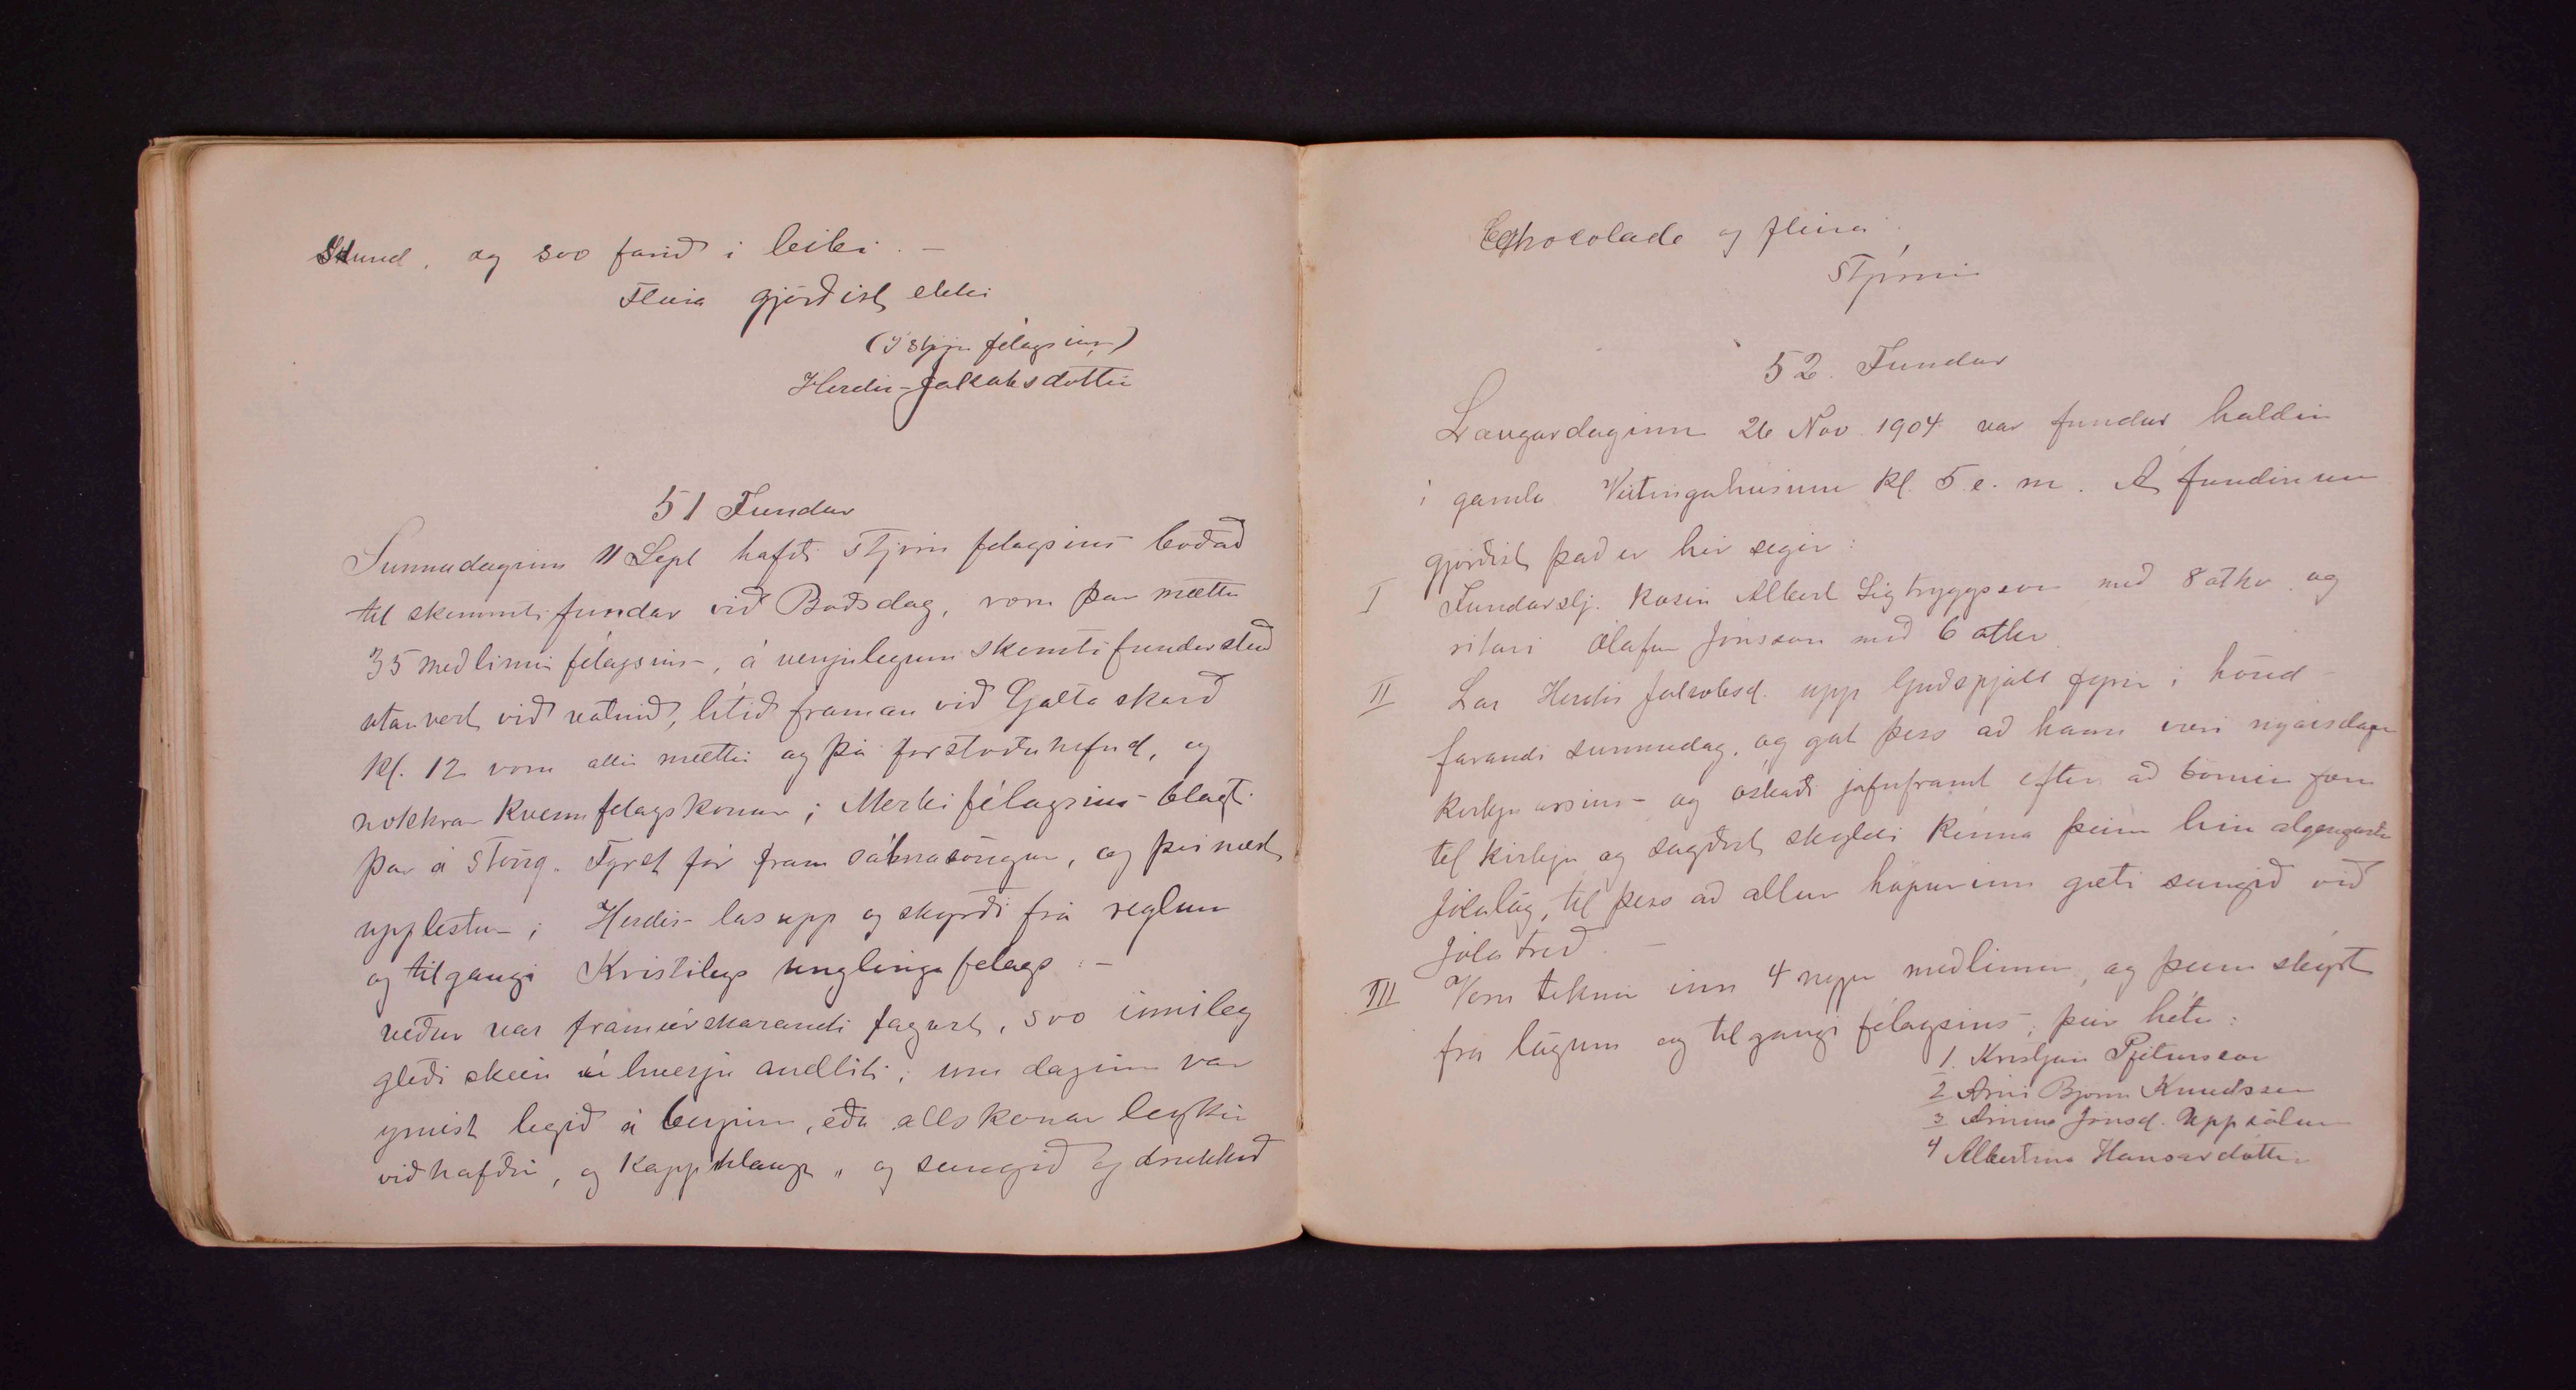 Stund, og svo farið i leiki. –
Fleira gjörðist ekki
(I stjórn félagsins)
Herdís Jakabsdóttir
51 Fundur
Sunnudaginn 11 Sept hafði stjórn felagsins boðað
til skemmtifundar við Boðsdag, voru þar mættir
35 meðlimir félagsins, á venjulegum skemtifundarstað
utanvert við vatnið, lítið framan við Galtaskarð
kl. 12 voru allir mættir og þá forstöðunefnd, og
nokkrar kvennfelagskonur; Merki félagsins blagti
þar á stöng. Fyrst fór fram sálmasöngur, og þvi næst
upplestur; Herdís las upp og skyrði frá reglum
og tilgangi Kristilegs unglinga felags: –
veður var framúrskarandi fagurt, svo innileg
gleði skein á hverju andliti; um daginn var
ymist legið á berjum, eða allskonar leykir
viðhafðir, og kapphlaup, og sungið og drukkið
Chocolade og fleira.
Stjórnin
52. Fundur
Laugardaginn 26 Nov. 1904 var fundur haldin
i gamla Veitingahúsinu kl. 5 e. m. Á fundinum
gjörðist það er hér segir:
I Fundarstj. kosin Albert Sigtryggsson með 8 atkv. og
ritari Olafur Jónsson með 6 atkv.
II Las Herdís Jakobsd. upp Guðspjall fyrir i hönd
farandi sunnudag, og gat þess að hann væri nyársdagur
kirkju ársins og óskaði jafnframt eftir að börnin færu
til kirkju og sagðist skyldi kenna þeim hin algengustu
jólalög, til þess að allur hópurinn gæti sungið við
Jólatréð. –
III Voru teknir inn 4 nyjir meðlimir, og þeim skýrt
frá lögum og tilgangi félagsins, þeir hétu:
1. Kristján Pjetursson
2 Arni Bjorn Knudssen
3 Arnina Jónsd. Uppsölum
4 Albertina Hansardóttir